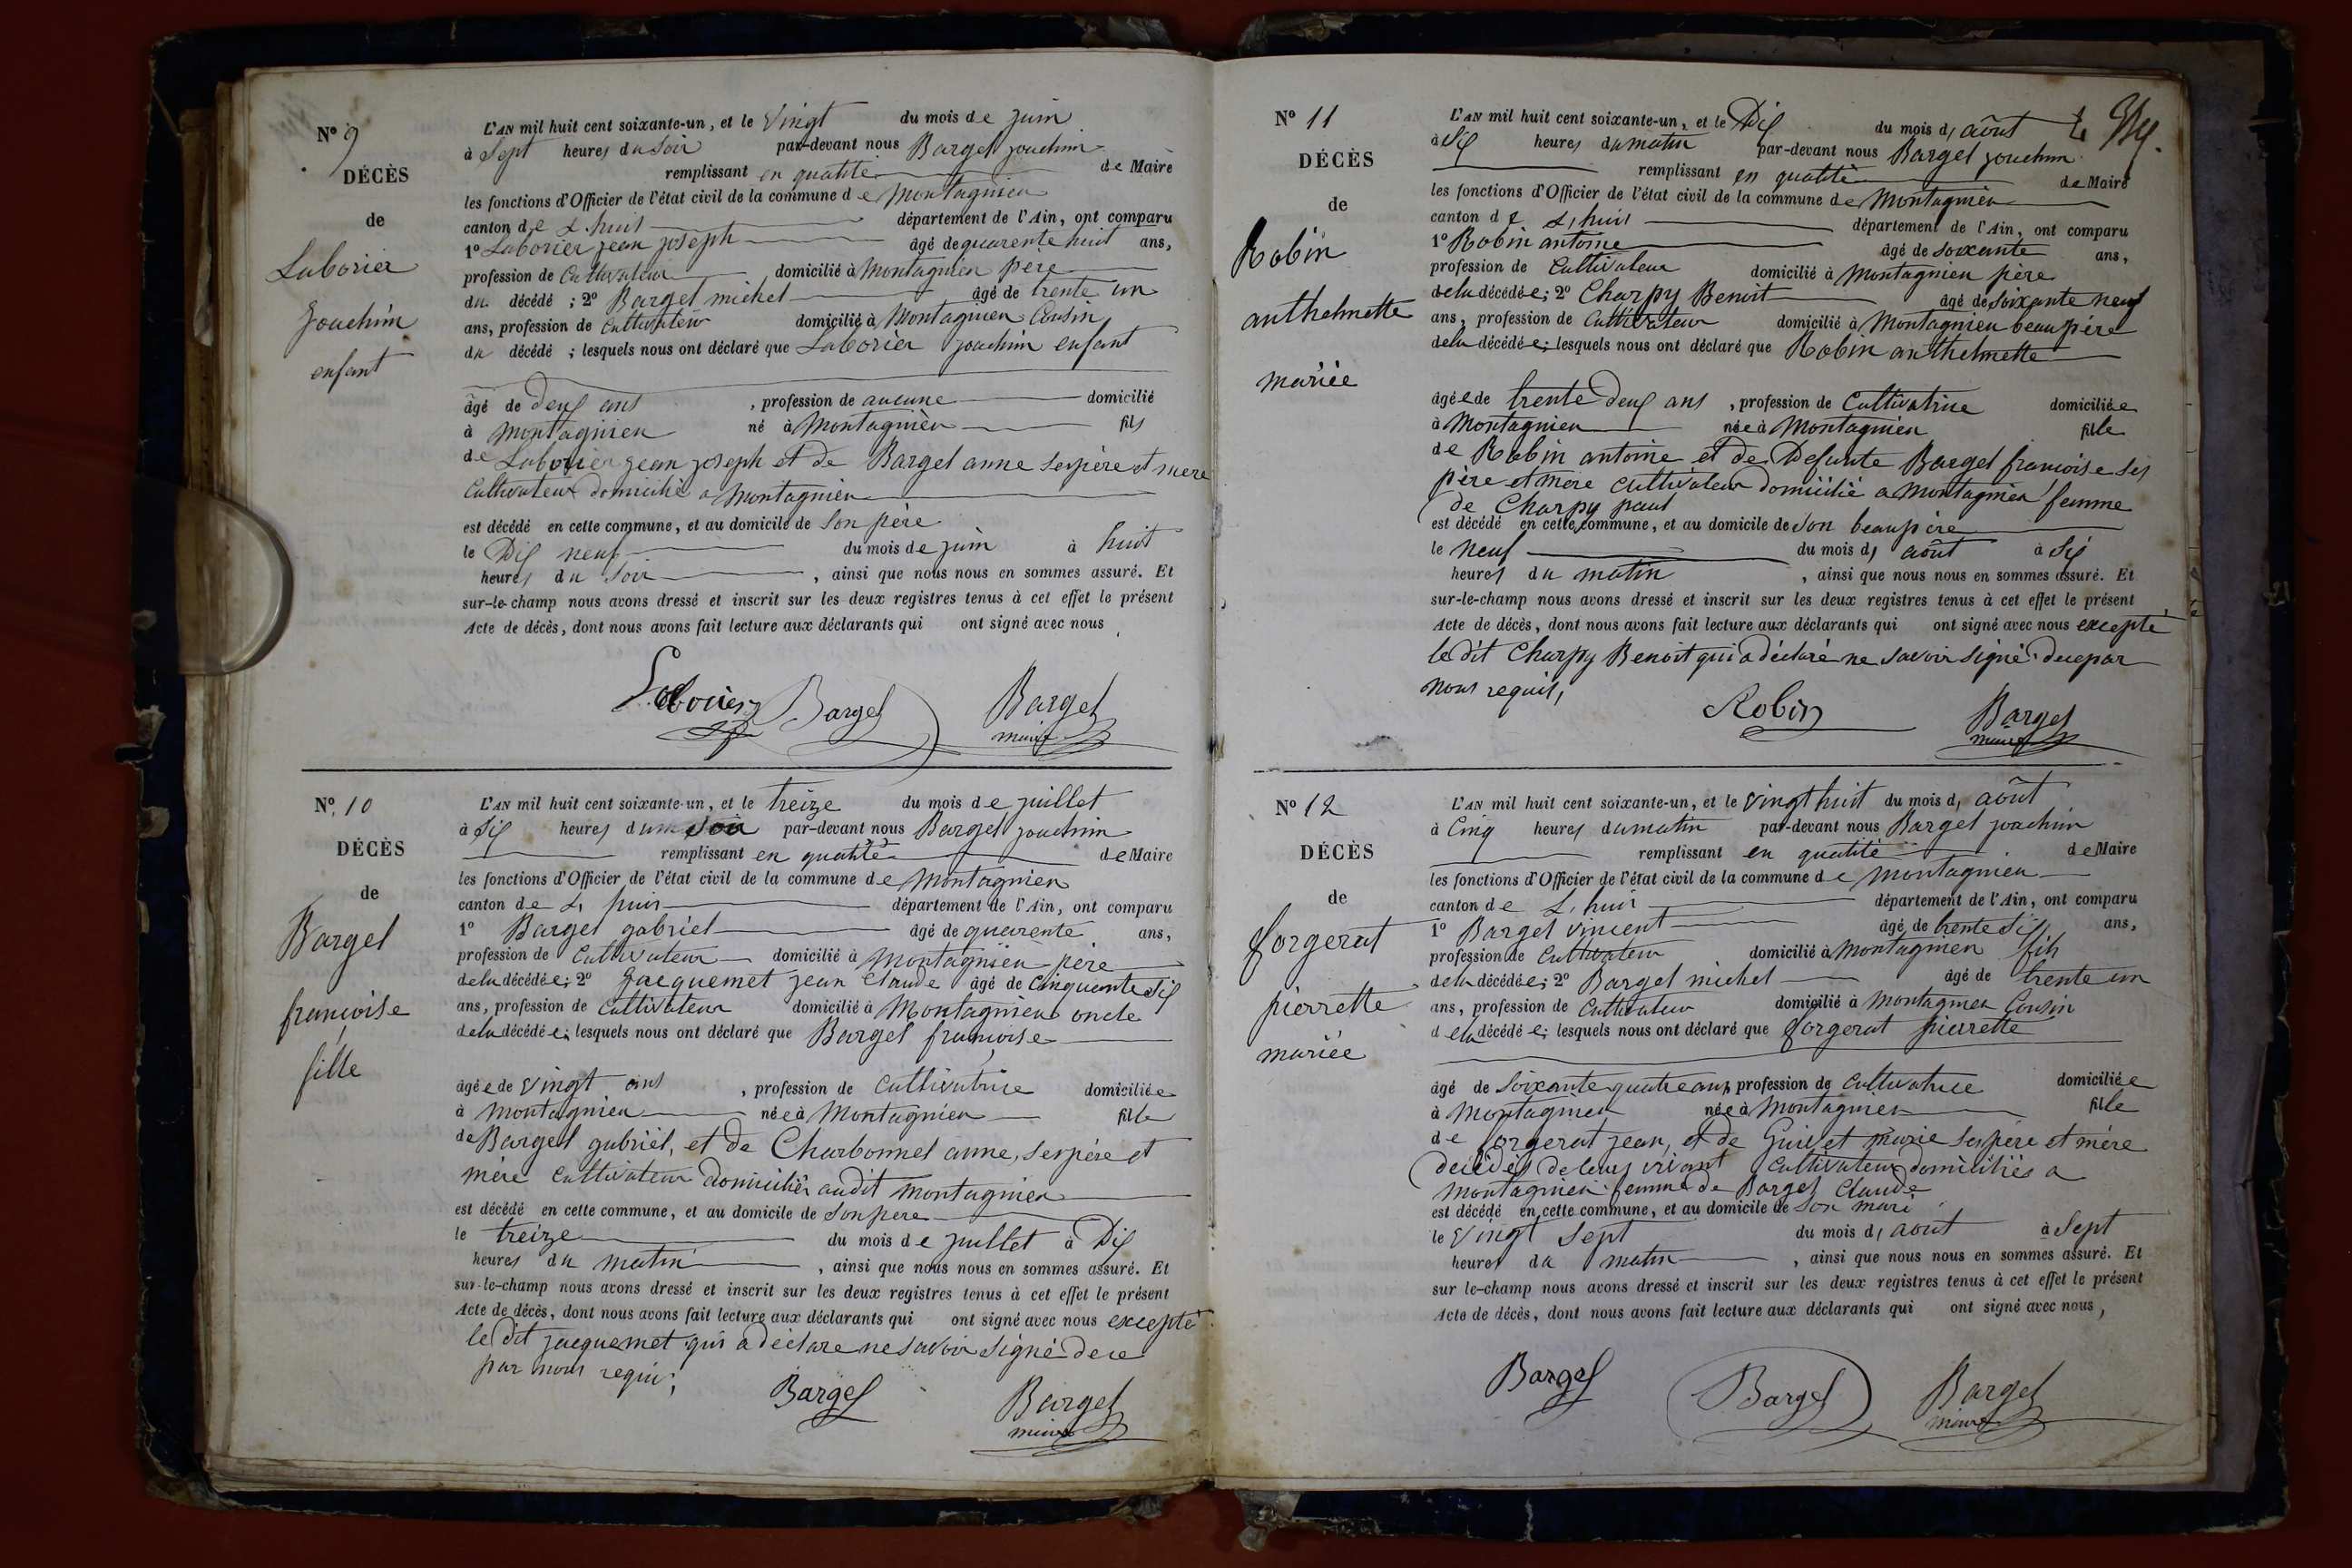 Nº 9
DÉCÈS
de
Laborier
Joachim
enfant
L'AN mil huit cent soixante-un, et le Vingt du mois de juin
à Sept heures du Soir par-devant nous Bargel joachim
remplissant en qualité de Maire
les fonctions d'Officier de l'état civil de la commune de Montagnieu
canton de L. huis département de l'Ain, ont comparu
1º Laborier jean joseph âgé de quarente huit ans,
profession de Cultivateur domicilié à Montagnieu père
du décédé ; 2º Bargel michel âgé de trente un
ans, profession de Cultivateur domicilié à Montagnieu Cousin
du décédé ; lesquels nous ont déclaré que Laborier joachim enfant
âgé de deux ans , profession de aucune domicilié
à Montagnieu né à Montagnieu fils
de Laborier jean joseph et de Bargel anne ses père et mère
Cultivateur domicilié a Montagnieu
est décédé en cette commune, et au domicile de Son père
le Dix neuf du mois de juin à huit
heures du Soir , ainsi que nous nous en sommes assuré. Et
sur-le-champ nous avons dressé et inscrit sur les deux registres tenus à cet effet le présent
Acte de décès, dont nous avons fait lecture aux déclarants qui ont signé avec nous
Laborier Bargel Bargel
maire
Nº 10
DÉCÈS
de
Bargel
françoise
fille
L'AN mil huit cent soixante-un, et le treize du mois de juillet
à Six heures du Soir par-devant nous Bargel joachim
remplissant en qualité de Maire
les fonctions d'Officier de l'état civil de la commune de Montagnieu
canton de L. huis département de l'Ain, ont comparu
1º Bargel gabriel âgé de quarente ans,
profession de Cultivateur domicilié à Montagnieu père
de la décédée; 2º Jacquemet jean Claude âgé de Cinquante Six
ans, profession de Cultivateur domicilié à Montagnieu oncle
de la décédée; lesquels nous ont déclaré que Bargel françoise
âgée de Vingt ans , profession de Cultivatrice domiciliée
à Montagnieu née à Montagnieu fille
de Bargel gabriel, et de Charbonnel anne, ses père et
mère Cultivateur domiciliés audit Montagnieu
est décédé en cette commune, et au domicile de Son père
le treize du mois de juillet à Dix
heures du matin , ainsi que nous nous en sommes assuré. Et
sur-le-champ nous avons dressé et inscrit sur les deux registres tenus à cet effet le présent
Acte de décès, dont nous avons fait lecture aux déclarants qui ont signé avec nous excepté
le dit jacquemet qui a déclaré ne Savoir Signé de ce
par nous requis;
Bargel Bargel
maire
Nº 11
DÉCÈS
de
Robin
anthelmette
mariée
L'AN mil huit cent soixante-un, et le Dix du mois d, août
à Six heures du matin par-devant nous Bargel joachim
remplissant en qualité de Maire
les fonctions d'Officier de l'état civil de la commune de Montagnieu
canton de L. huis département de l'Ain, ont comparu
1º Robin antoine âgé de soixante ans,
profession de Cultivateur domicilié à Montagnieu père
de la décédée; 2º Charpy Benoit âgé de Soixante neuf
ans, profession de Cultivateur domicilié à Montagnieu beau père
de la décédée; lesquels nous ont déclaré que Robin anthelmette
âgée de trente Deux ans , profession de Cultivatrice domiciliée
à Montagnieu née à Montagnieu fille
de Robin antoine et de Defunte Bargel francoise Ses
père et mère cultivateur domicilié a Montagnieu femme
de Charpy paul
est décédé en cette commune, et au domicile de Son beaupère
le Neuf du mois d, août à Six
heures du matin , ainsi que nous nous en sommes assuré. Et
sur-le-champ nous avons dressé et inscrit sur les deux registres tenus à cet effet le présent
Acte de décès, dont nous avons fait lecture aux déclarants qui ont signé avec nous excepté
le dit Charpy Benoit qui a déclaré ne Savoir Signé de ce par
nous requis,
Robin Bargel
maire
Nº 12
DÉCÈS
de
forgerat
pierrette
mariée
L'AN mil huit cent soixante-un, et le Vingt huit du mois d, août
à Cinq heures du matin par-devant nous Bargel joachim
remplissant en qualité de Maire
les fonctions d'Officier de l'état civil de la commune de Montagnieu
canton de L. huis département de l'Ain, ont comparu
1º Bargel vincent âgé de trente Six ans,
profession de Cultivateur domicilié à Montagnieu fils
de la décédée; 2º Bargel michel âgé de trente un
ans, profession de Cultivateur domicilié à Montagnieu Cousin
de la décédée; lesquels nous ont déclaré que forgerat pierrette
âgé de Soixante quatre ans, profession de Cultivatrice domiciliée
à Montagnieu née à Montagnieu fille
de forgerat jean, et de Guillet marie Ses père et mère
décédés de leurs vivant Cultivateur domiciliés a
Montagnieu femme de Bargel Claude
est décédé en cette commune, et au domicile de Son mari
le Vingt Sept du mois d, aout à Sept
heures du matin , ainsi que nous nous en sommes assuré. Et
sur le-champ nous avons dressé et inscrit sur les deux registres tenus à cet effet le présent
Acte de décès, dont nous avons fait lecture aux déclarants qui ont signé avec nous,
Bargel Bargel Bargel
maire